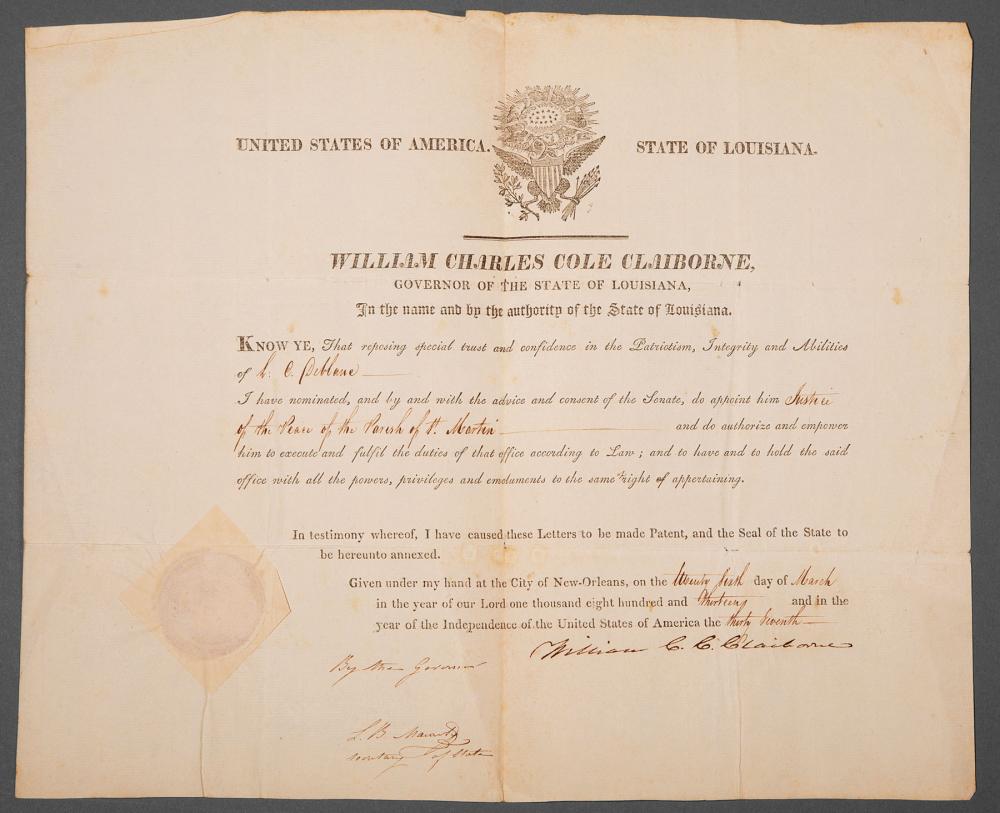 UNITED STATES OF AMERICA. STATE OF LOUISIANA.
WILLIAM CHARLES COLE CLAIBORNE,
GOVERNOR OF THE STATE OF LOUISIANA,
In the name and by the authority of the State of Louisiana.
KNOW YE, That reposing special trust and confidence in the Patriotism, Integrity and Abilities
of L. C. Deblanc
I have nominated, and by and with the advice and consent of the Senate, do appoint him Justice
of the Peace of the Parish of St. Martin and do authorize and empower
him to execute and fulfil the duties of that office according to Law; and to have and to hold the said
office with all the powers, privileges and emoluments to the same right of appertaining.
In testimony whereof, I have caused these Letters to be made Patent, and the Seal of the State to
be hereunto annexed.
Given under my hand at the City of New-Orleans, on the Twenty sixth day of March
in the year of our Lord one thousand eight hundred and thirteen and in the
year of the Independence of the United States of America the thirty seventh
William C. C. Claiborne
By the Governor
L. B. Macarty
Secretary of State